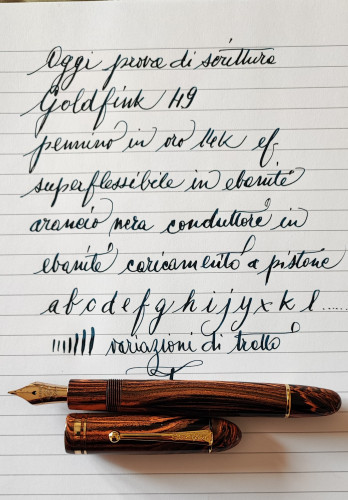 Oggi prova di scrittura
Goldfink 49
pennino in oro 14k ef
superflessibile in ebanite
arancio nera conduttore in
ebanite caricamento a pistone
a b c d e f g h i j y x k l ......
variazioni di tratto